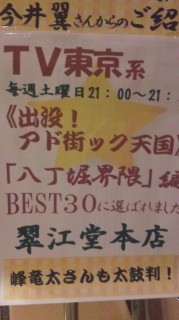 今井翼さんからのご紹
TV東京系
毎週土曜日21:00〜21:
《出没!
アド街ック天国》
「八丁堀界隈」編
BEST30に選ばれました
翠江堂本店
峰竜太さんも太鼓判!